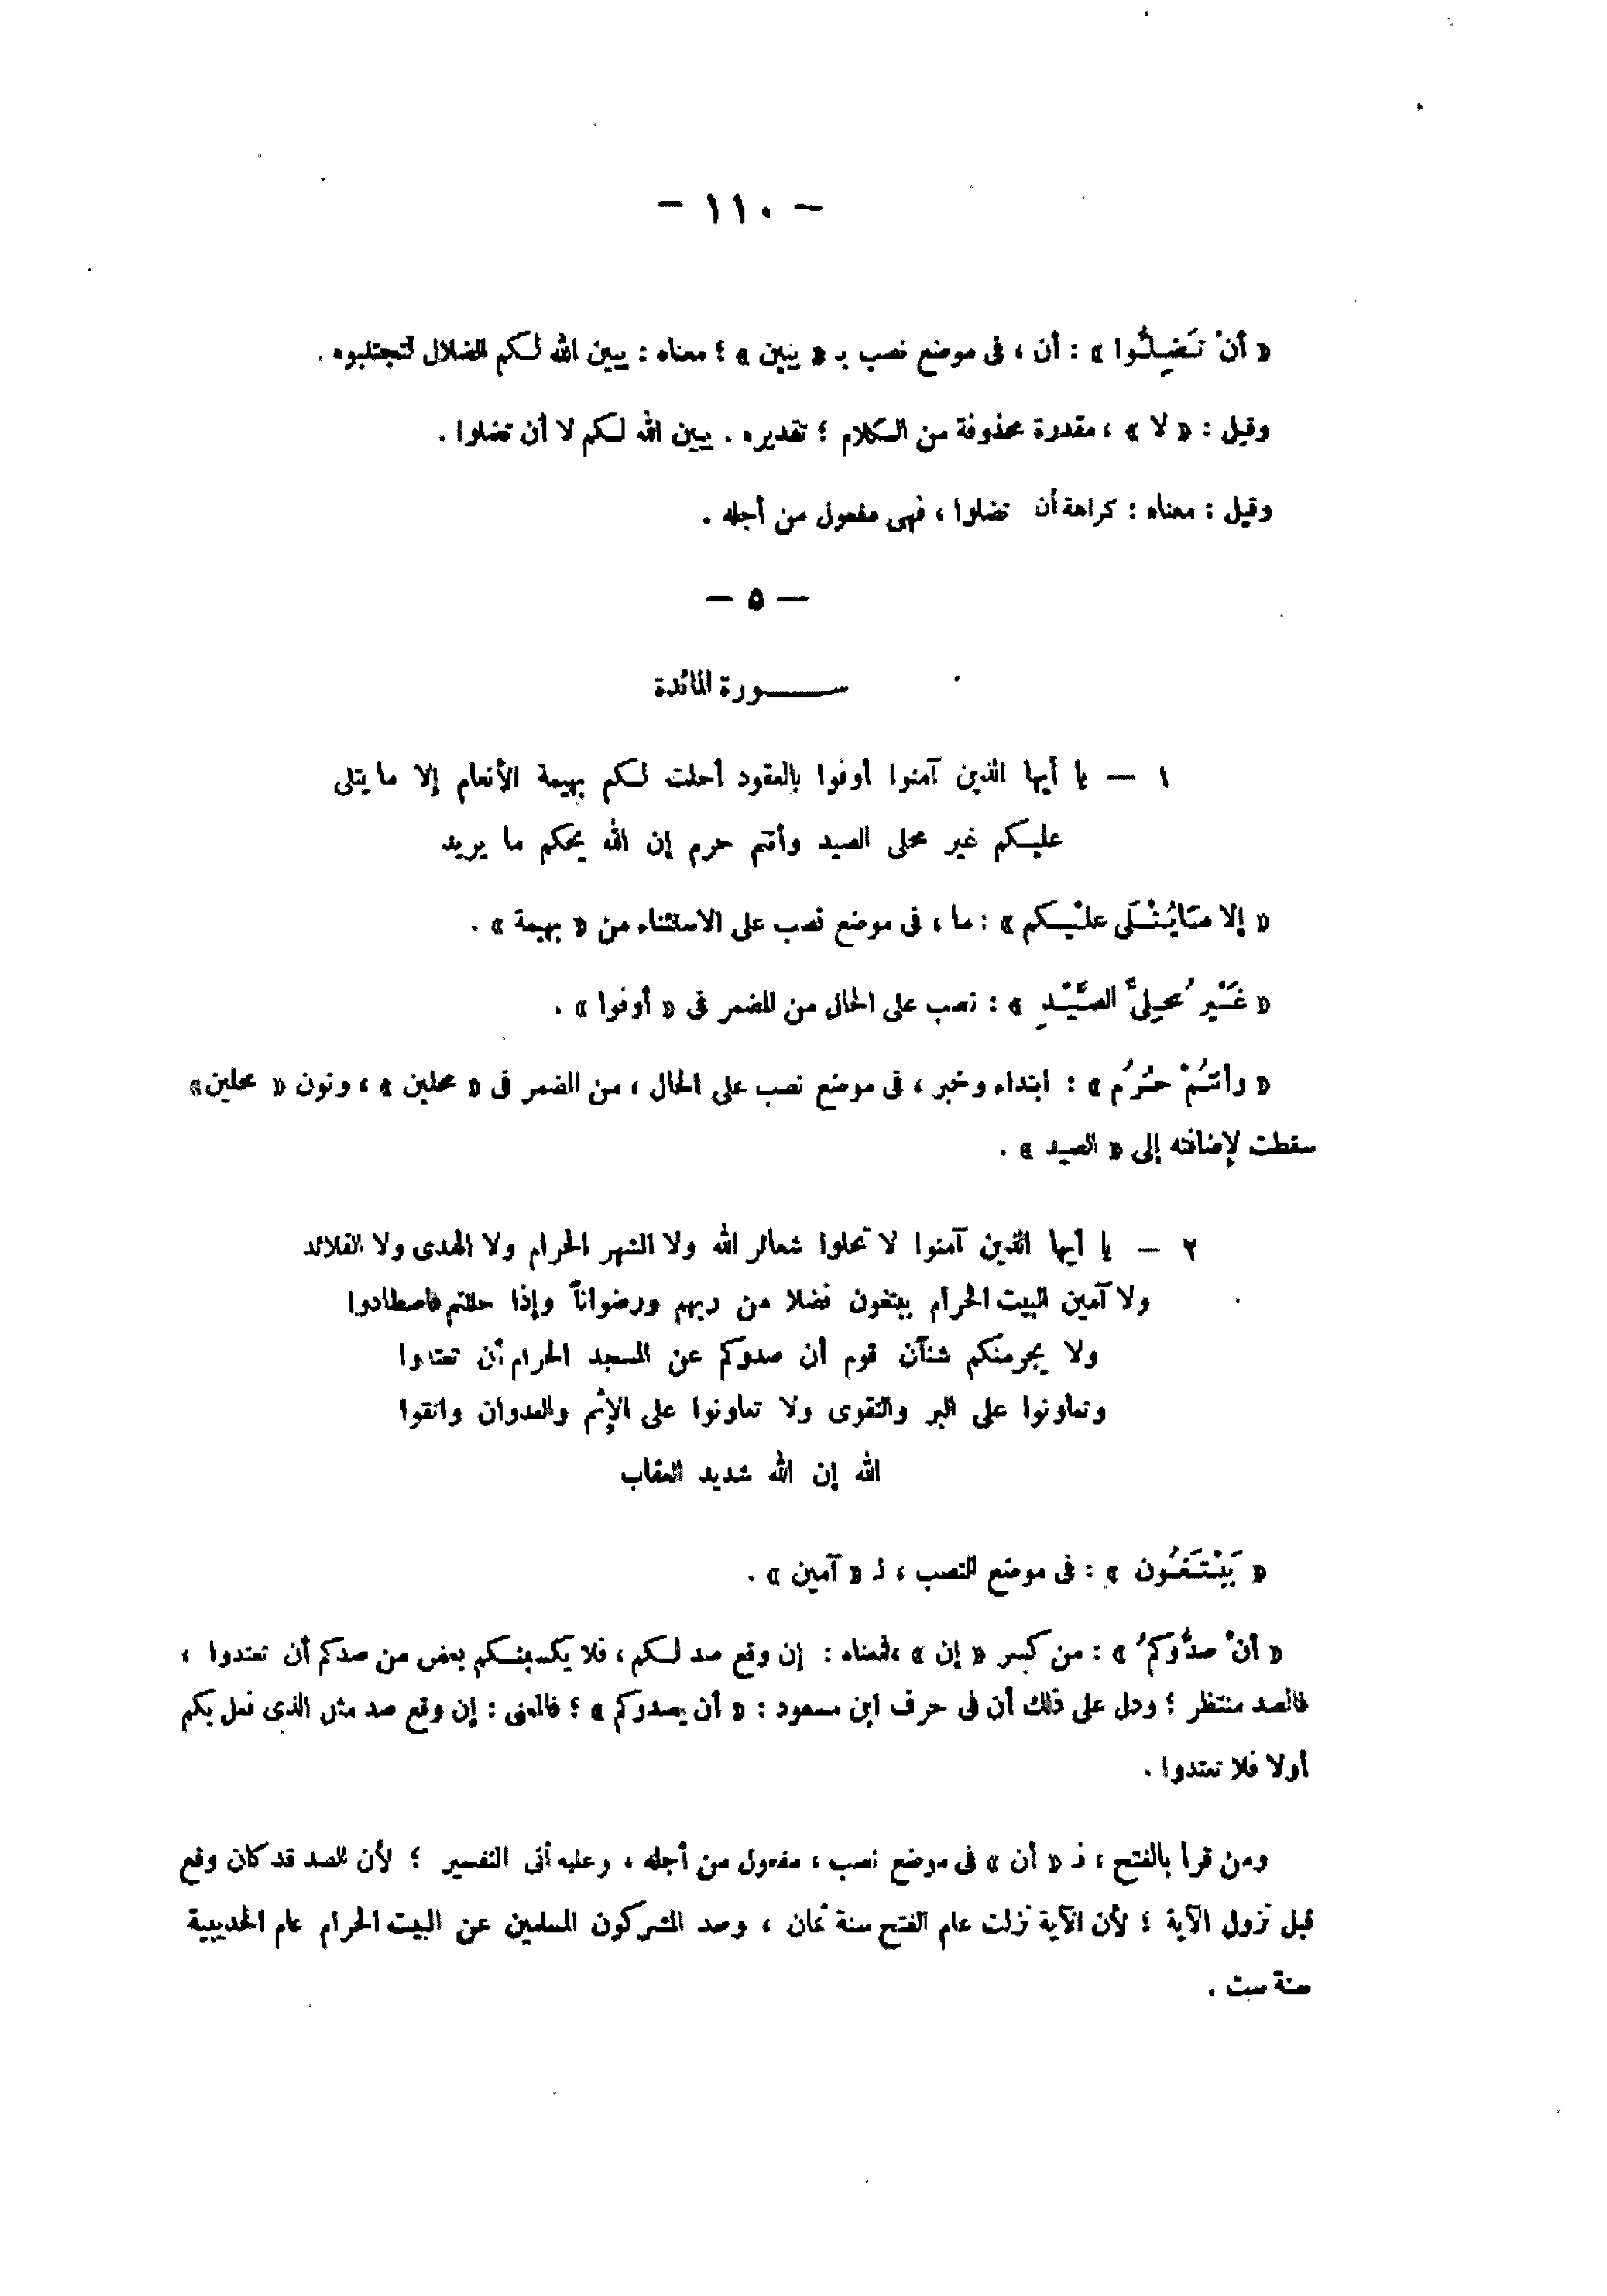 — ١١٠ —
« أنْ تَضِلُّوا » : أن ، فى موضع نصب بـ « يبين » ؛ معناه : يبين الله لكم الضلال لتجتنبوه .
وقيل : « لا » ، مقدرة محذوفة من الكلام ؛ تقديره . يبين الله لكم لا أن تضلوا .
وقيل : معناه : كراهة أن تضلوا ، فهى مفعول من أجله .
— ٥ —
ســـورة المائدة
١ — يا أيها الذين آمنوا أوفوا بالعقود أحلت لكم بهيمة الأنعام إلا ما يتلى
عليكم غير محلى الصيد وأنتم حرم إن الله يحكم ما يريد
« إلا مَا يُتْلَى عليْكم » : ما ، فى موضع نصب على الاستثناء من « بهيمة » .
« غَيْر مُحِلِىَّ الصَّيْدِ » : نصب على الحال من المضمر فى « أوفوا » .
« وأنتُمْ حُرُم » : ابتداء وخبر ، فى موضع نصب على الحال ، من المضمر فى « محلين » ، ونون « محلين »
سقطت لإضافته إلى « الصيد » .
٢ — يا أيها الذين آمنوا لا تحلوا شعائر الله ولا الشهر الحرام ولا الهدى ولا القلائد
ولا آمين البيت الحرام يبتغون فضلا من ربهم ورضواناً وإذا حللتم فاصطادوا
ولا يجرمنكم شنآن قوم أن صدوكم عن المسجد الحرام أن تعتدوا
وتعاونوا على البر والتقوى ولا تعاونوا على الإثم والعدوان واتقوا
الله إن الله شديد العقاب
« يَبْتَغُون » : فى موضع النصب ، لـ « آمين » .
« أنْ صدُّوكمُ » : من كسر « إن » ، فمعناه : إن وقع صد لكم ، فلا يكسبنكم بغض من صدكم أن تعتدوا ،
فالصد منتظر ؛ ودل على ذلك أن فى حرف ابن مسعود : « أن يصدوكم » ؛ فالمعنى : إن وقع صد مثل الذى فعل بكم
أولا فلا تعتدوا .
ومن قرأ بالفتح ، فـ « أن » فى موضع نصب ، مفعول من أجله ، وعليه أتى التفسير ؛ لأن الصد قد كان وقع
قبل نزول الآية ؛ لأن الآية نزلت عام الفتح سنة ثمان ، وصد المشركون المسلمين عن البيت الحرام عام الحديبية
سنة ست .